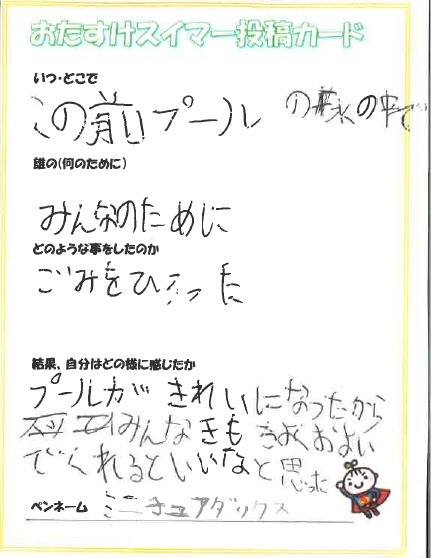 おたすけスイマー投稿カード
いつ・どこで
この前プール の の中で
誰の(何のために)
みんなのために
どのような事をしたのか
ごみをひろった
結果、自分はどの様に感じたか
プールが きれいになったから
みんなきもちよくおよい
でくれるといいなと思った
ペンネーム ミニチュアダックス